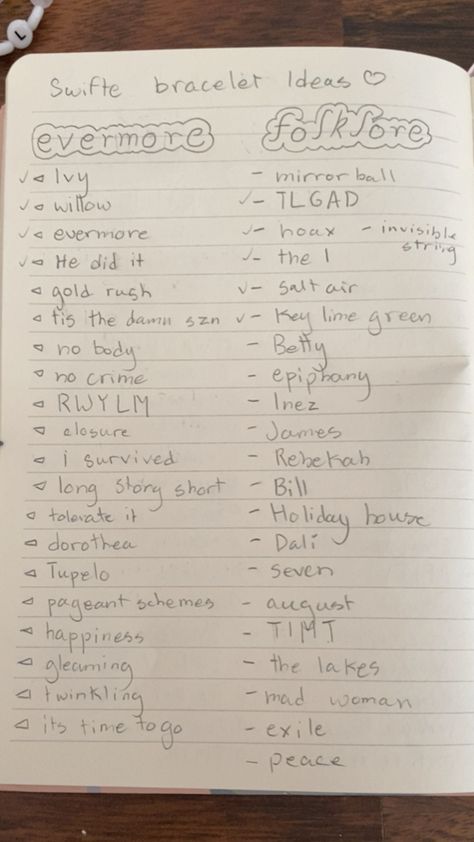 L
Swifte bracelet Ideas ♡
evermore
✓ Ivy
✓ willow
✓ evermore
✓ He did it
gold rush
tis the damn szn
no body
no crime
RWYLM
closure
i survived
long story short
tolerate it
dorothea
Tupelo
pageant schemes
happiness
gleaming
twinkling
its time to go
folklore
- mirrorball
✓- TLGAD
✓- hoax - invisible string
✓- the 1
✓- salt air
✓- Key lime green
- Betty
- epiphany
- Inez
- James
- Rebekah
- Bill
- Holiday house
- Dali
- seven
- august
- TIMT
- the lakes
- mad woman
- exile
- peace